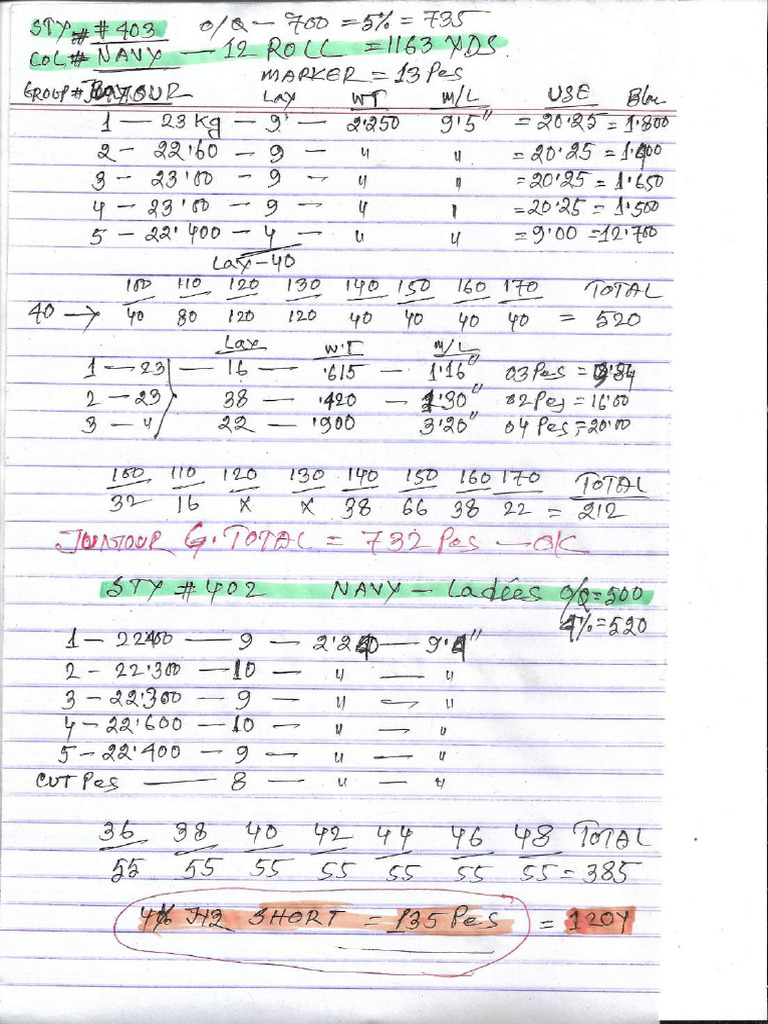 STY # # 403 O/Q - 700 = 5% = 735
COL # NAVY - 12 ROLL = 1163 YDS
MARKER = 13 Pes
GROUP # Lay WT M/L USE Blac
1 - 23 kg - 9 - 2.250 9.5" = 20.25 = 1.800
2 - 22.60 - 9 - " " = 20.25 =
3 - 23.00 - 9 - " " = 20.25 = 1.650
4 - 23.00 - 9 - " " = 20.25 = 1.500
5 - 22.400 - 4 - " " = 9.00 = 12.700
Lax - 40
100 110 120 130 140 150 160 170 TOTAL
40 → 40 80 120 120 40 40 40 40 = 520
Lax W.T M/L
1 - 23 - 16 - .615 - 1.16" 03 Pes =
2 - 23 - 38 - .420 - 1.30" 02 Pes = 16.00
3 - 4 - 22 - .900 3.20" 04 Pes = 20.00
100 110 120 130 140 150 160 170 TOTAL
32 16 x x 38 66 38 22 = 212
JUNIOUR G. TOTAL = 732 Pes - OK
STY # 402 NAVY - Ladées O/Q = 500
4% = 520
1 - 22400 - 9 - 2.240 - 9.4"
2 - 22.300 - 10 - " - "
3 - 22.300 - 9 - " - "
4 - 22.600 - 10 - " - "
5 - 22.400 - 9 - " - "
CUT Pes - 8 - " - "
36 38 40 42 44 46 48 TOTAL
55 55 55 55 55 55 55 = 385
SHORT = 135 Pes = 120Y